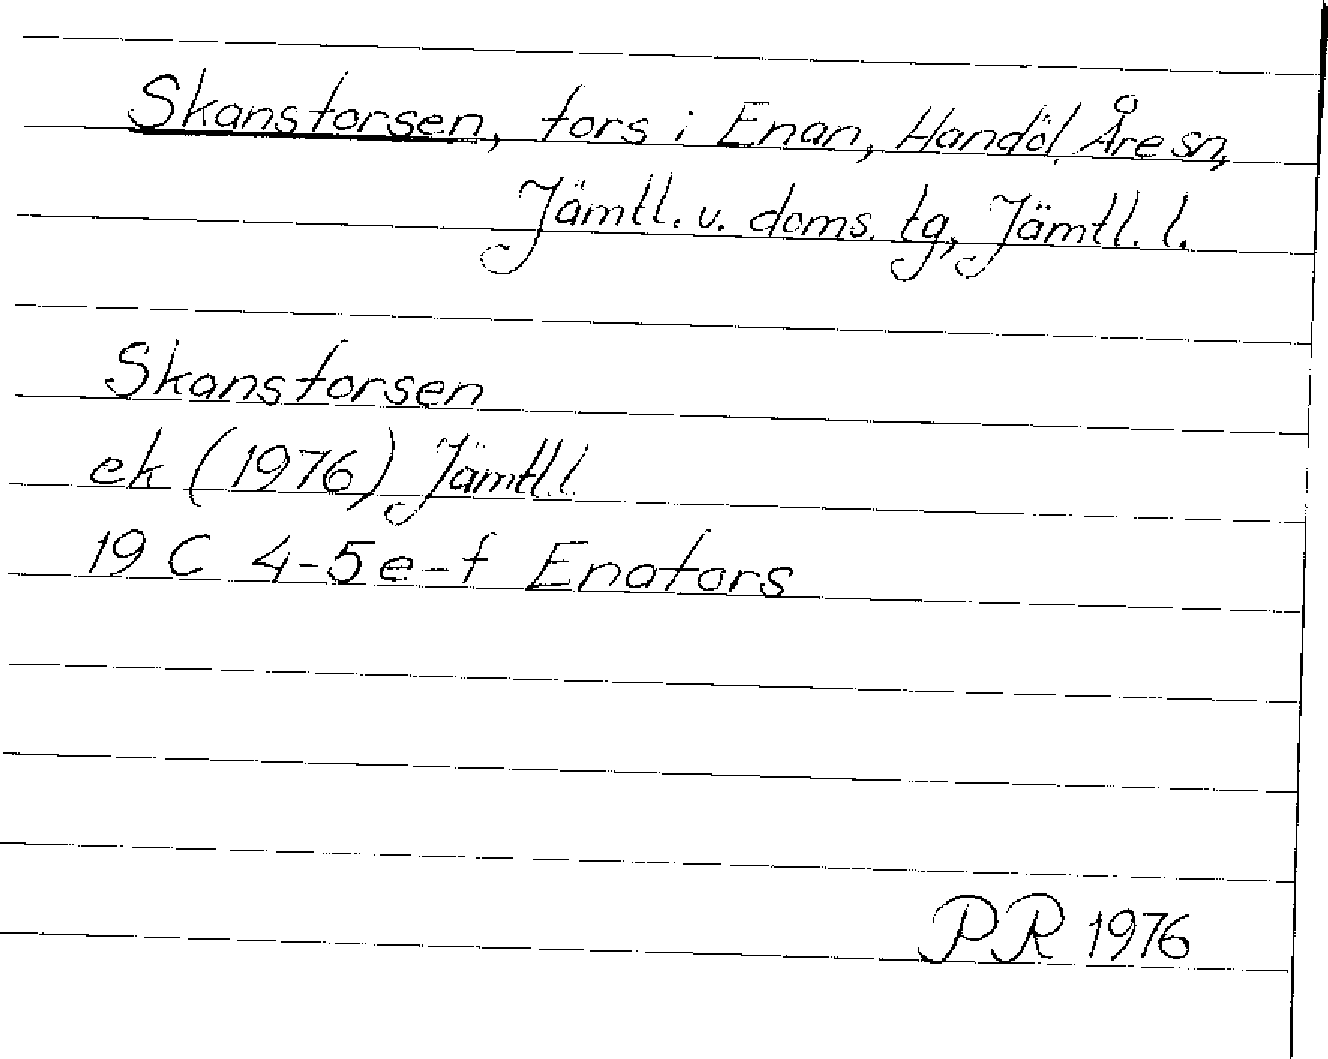 Skansforsen, fors i Enan, Handöl, Åre sn,
Jämtl. v. doms. tg, Jämtl. l.
Skansforsen
ek (1976) Jämtl.l.
19 C 4-5 e-f Enafors
PR 1976